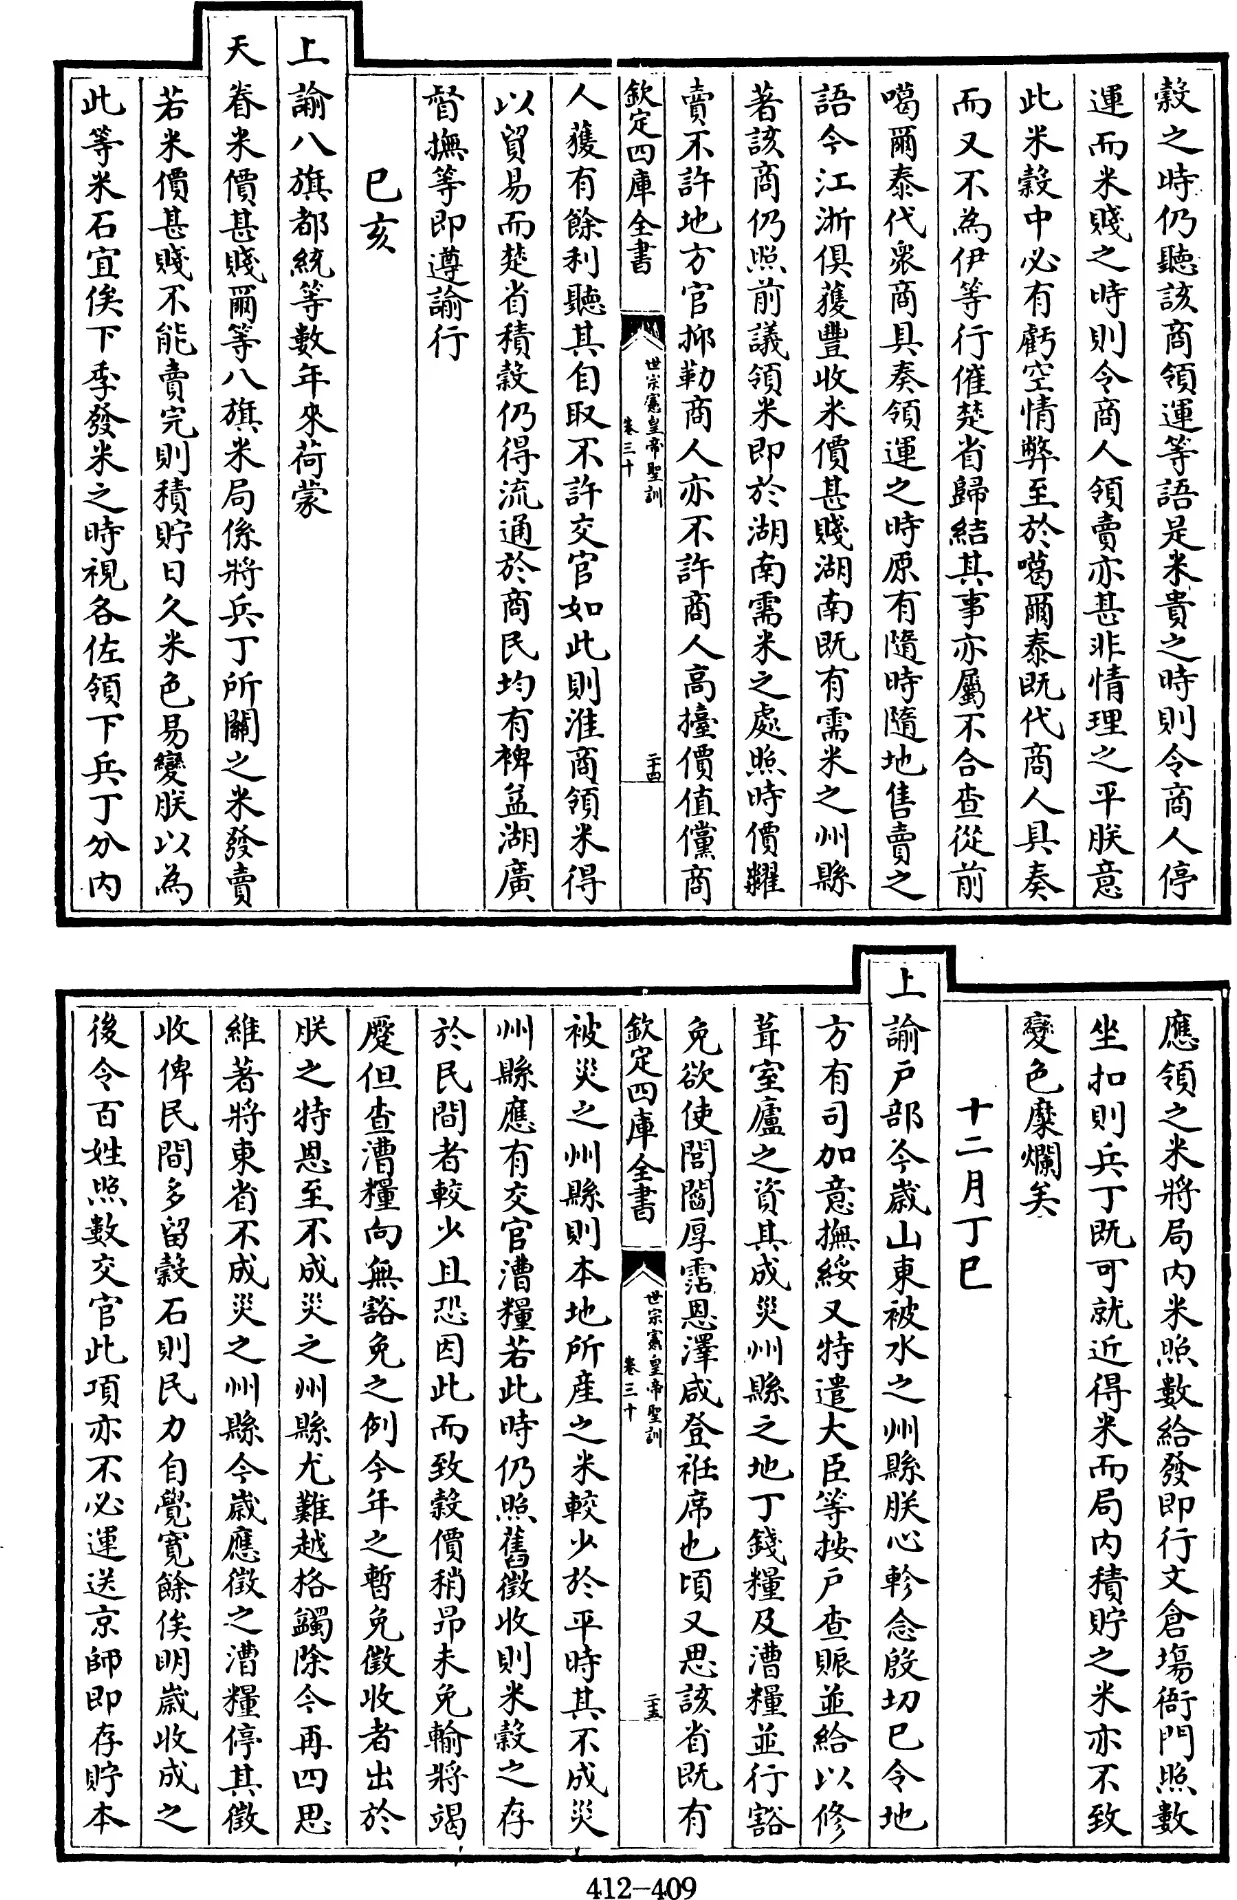 穀之時仍聽該商領運等語是米貴之時則令商人停
運而米賤之時則令商人領賣亦甚非情理之平朕意
此米穀中必有虧空情弊至於噶爾泰既代商人具奏
而又不為伊等行催楚省歸結其事亦屬不合查從前
噶爾泰代衆商具奏領運之時原有隨時隨地售賣之
語今江浙俱獲豐收米價甚賤湖南既有需米之州縣
著該商仍照前議領米即於湖南需米之處照時價糶
賣不許地方官抑勒商人亦不許商人高擡價值儻商
欽定四庫全書
世宗憲皇帝聖訓
卷三十
二十四
人獲有餘利聽其自取不許交官如此則淮商領米得
以貿易而楚省積穀仍得流通於商民均有裨益湖廣
督撫等即遵諭行
已亥
上諭八旗都統等數年來荷蒙
天眷米價甚賤爾等八旗米局係將兵丁所關之米發賣
若米價甚賤不能賣完則積貯日久米色易變朕以為
此等米石宜俟下季發米之時視各佐領下兵丁分內
應領之米將局內米照數給發即行文倉場衙門照數
坐扣則兵丁既可就近得米而局內積貯之米亦不致
變色糜爛矣
十二月丁巳
上諭戶部今歲山東被水之州縣朕心軫念殷切已令地
方有司加意撫綏又特遣大臣等按戶查賑並給以修
葺室廬之資其成災州縣之地丁錢糧及漕糧並行豁
免欲使閭閻厚霑恩澤咸登袵席也頃又思該省既有
欽定四庫全書
世宗憲皇帝聖訓
卷三十
二十五
被災之州縣則本地所產之米較少於平時其不成災
州縣應有交官漕糧若此時仍照舊徵收則米穀之存
於民間者較少且恐因此而致穀價稍昂未免輸將竭
蹷但查漕糧向無豁免之例今年之暫免徵收者出於
朕之特恩至不成災之州縣尤難越格蠲除今再四思
維著將東省不成災之州縣今歲應徵之漕糧停其徵
收俾民間多留穀石則民力自覺寬餘俟明歲收成之
後令百姓照數交官此項亦不必運送京師即存貯本
412-409